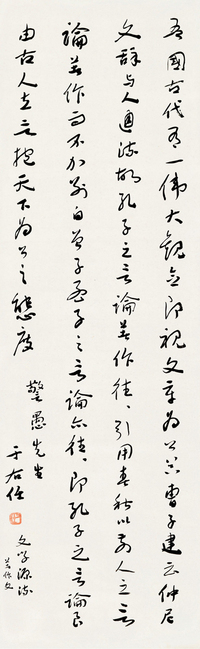 吾國古代有一偉大觀念即視文章為公器曹子建云仲尼
文辭與人通流故孔子之言論著作往往引用春秋以前人之言
論著作而不加剖白曾子孟子之言論亦往往即孔子之言論良
由古人立言抱天下為公之態度
警愚先生
于右任
文學源流